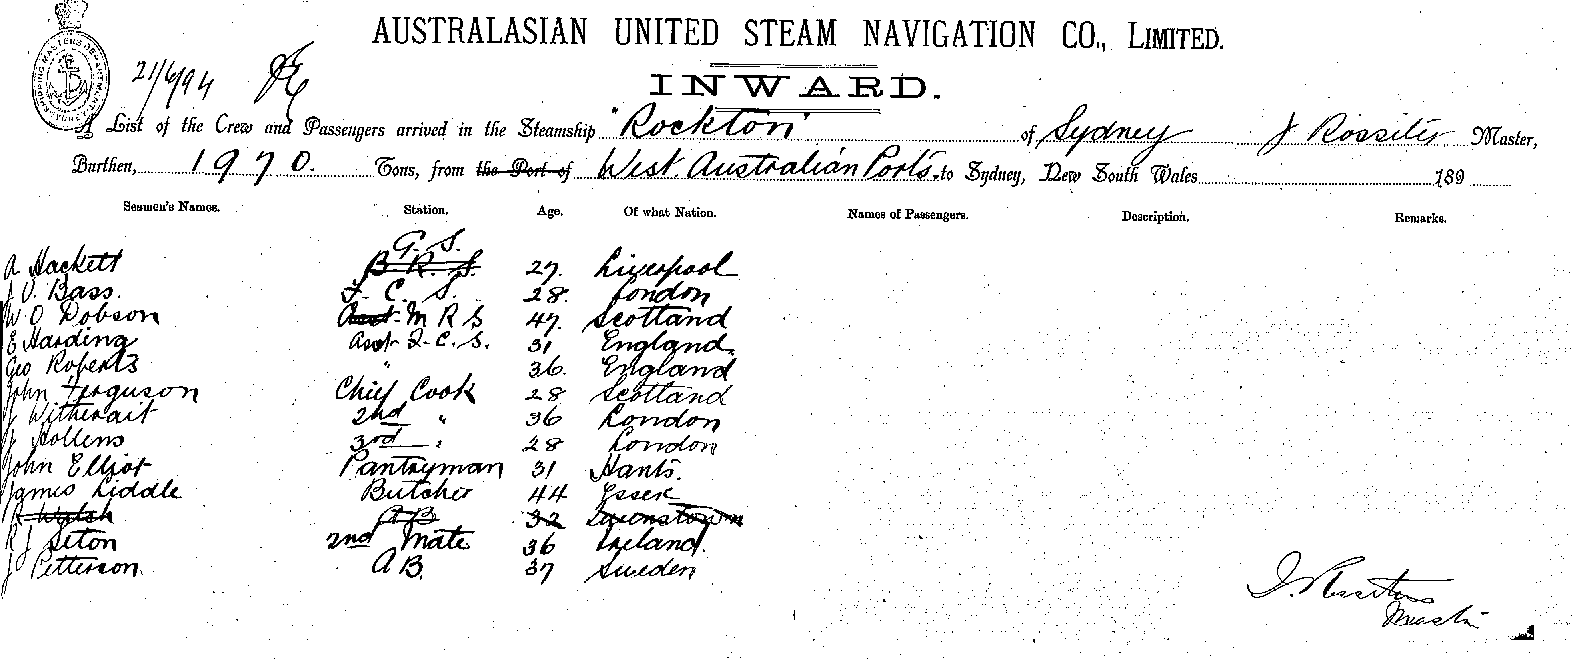 AUSTRALASIAN UNITED STEAM NAVIGATION CO., LIMITED.
SHIPPING MASTERS DEPARTMENT
21/6/94
INWARD.
A List of the Crew and Passengers arrived in the Steamship "Rockton" of Sydney J Rossiter Master,
Burthen, 1970. Tons, from the Port of West Australian Ports. to Sydney, New South Wales 189
Seamen's Names. Station. Age. Of what Nation. Names of Passengers. Description. Remarks.
G. S.
A Hackett B. R. S. 27. Liverpool
J. O. Bass. F. C. S. 28. London
W O Dobson Asst. M R S 47. Scotland
E Harding Asst F. C. S. 31 England.
Geo Roberts " 36. England
John Ferguson Chief Cook 28 Scotland
J Witherait 2nd " 36 London
Hollens 3rd " 28 London
John Elliot Pantryman 31 Hants.
James Liddle Butcher 44 Essex
R Welsh AB 32 Queenstown
R J Seton 2nd Mate 36 Ireland.
J Petterson. A B. 37 Sweden
J. Rossiter
Master